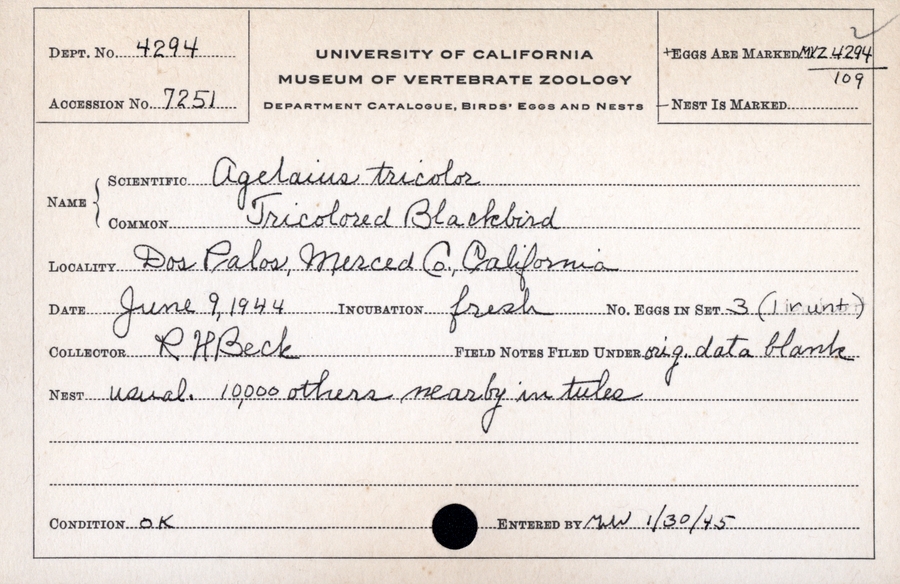 2
DEPT. NO. 4294
UNIVERSITY OF CALIFORNIA
MUSEUM OF VERTEBRATE ZOOLOGY
DEPARTMENT CATALOGUE, BIRDS' EGGS AND NESTS
+EGGS ARE MARKED MVZ 4294
109
ACCESSION NO. 7251
NEST IS MARKED
NAME
SCIENTIFIC Agelaius tricolor
COMMON Tricolored Blackbird
LOCALITY Dos Palos, Merced Co., California
DATE June 9, 1944 INCUBATION fresh NO. EGGS IN SET 3 (1 runt)
COLLECTOR R H Beck FIELD NOTES FILED UNDER orig. data blank
NEST usual. 10,000 others nearby in tules
CONDITION OK ENTERED BY 1/30/45